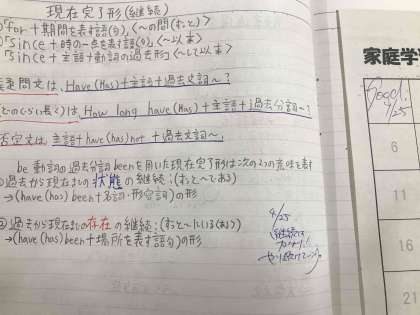 現在完了形(継続)
①「for+期間を表す語(句)、<〜の間(ずっと)>
②「since+時の一点を表す語(句)、<〜以来>
③「since+主語+動詞の過去形」<〜して以来>
疑問文は、Have(Has)+主語+過去分詞〜?
「どのくらい長く」は、How long have(has)+主語+過去分詞〜?
否定文は、主語+have(has)not+過去分詞〜.
be動詞の過去分詞beenを用いた現在完了形は次の2つの意味を表す
①過去から現在までの状態の継続:(ずっと〜である)
→(have(has)been+名詞・形容詞)の形
②過去から現在までの存在の継続:(ずっと〜にいる(ある))
→(have(has)been+場所を表す語句)の形
4/25
継続は
家庭学
Good!
4/25
6
11
16
21